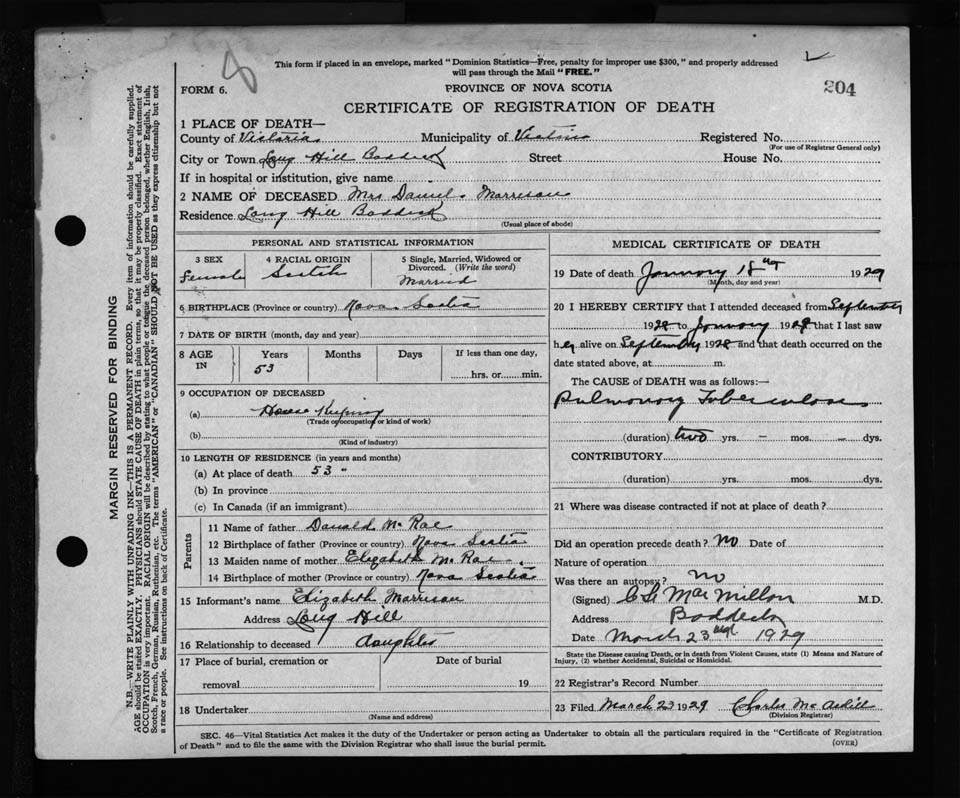 This form if placed in an envelope, marked "Dominion Statistics—Free, penalty for improper use $300," and properly addressed
will pass through the Mail "FREE."
8
204
FORM 6.
PROVINCE OF NOVA SCOTIA
CERTIFICATE OF REGISTRATION OF DEATH
MARGIN RESERVED FOR BINDING
N.B.—WRITE PLAINLY WITH UNFADING INK—THIS IS A PERMANENT RECORD. Every item of information should be carefully supplied.
AGE should be stated EXACTLY. PHYSICIANS should STATE CAUSE OF DEATH in plain terms, so that it may be properly classified. Exact statement of
OCCUPATION is very important. RACIAL ORIGIN will be described by stating to what people or tongue the deceased person belonged, whether English, Irish,
Scotch, French, German, Russian, Ruthenian, etc. The terms "AMERICAN" or "CANADIAN" SHOULD NOT BE USED as they express citizenship but not
a race or people. See instructions on back of Certificate.
1 PLACE OF DEATH—
County of Victoria Municipality of Victoria Registered No.
(For use of Registrar General only)
City or Town Long Hill Baddeck Street House No.
If in hospital or institution, give name
2 NAME OF DECEASED Mrs Daniel Morrison
Residence Long Hill Baddeck
(Usual place of abode)
PERSONAL AND STATISTICAL INFORMATION
3 SEX 4 RACIAL ORIGIN 5 Single, Married, Widowed or
Divorced. (Write the word)
Female Scotch Married
6 BIRTHPLACE (Province or country) Nova Scotia
7 DATE OF BIRTH (month, day and year)
8 AGE IN Years Months Days If less than one day,
53 hrs. or min.
9 OCCUPATION OF DECEASED
(a) House Keeping
(Trade or occupation or kind of work)
(b)
(Kind of industry)
10 LENGTH OF RESIDENCE (in years and months)
(a) At place of death 53 "
(b) In province
(c) In Canada (if an immigrant)
Parents
11 Name of father Donald McRae
12 Birthplace of father (Province or country) Nova Scotia
13 Maiden name of mother Elizabeth McRae
14 Birthplace of mother (Province or country) Nova Scotia
15 Informant's name Elizabeth Morrison
Address Long Hill
16 Relationship to deceased daughter
17 Place of burial, cremation or Date of burial
removal 19
18 Undertaker
(Name and address)
MEDICAL CERTIFICATE OF DEATH
19 Date of death January 18th 1929
(Month, day and year)
20 I HEREBY CERTIFY that I attended deceased from September
1928 to January 1929 that I last saw
her alive on September 1928 and that death occurred on the
date stated above, at m.
The CAUSE of DEATH was as follows:—
Pulmonary Tuberculosis
(duration) two yrs. – mos. – dys.
CONTRIBUTORY
(duration) yrs. mos. dys.
21 Where was disease contracted if not at place of death?
Did an operation precede death? no Date of
Nature of operation
Was there an autopsy? no
(Signed) MacMillan M.D.
Address Baddeck
Date March 23 1929
State the Disease causing Death, or in death from Violent Causes, state (1) Means and Nature of
Injury, (2) whether Accidental, Suicidal or Homicidal.
22 Registrar's Record Number
23 Filed March 23 1929 Charles
(Division Registrar)
SEC. 46—Vital Statistics Act makes it the duty of the Undertaker or person acting as Undertaker to obtain all the particulars required in the "Certificate of Registration
of Death" and to file the same with the Division Registrar who shall issue the burial permit.
(OVER)